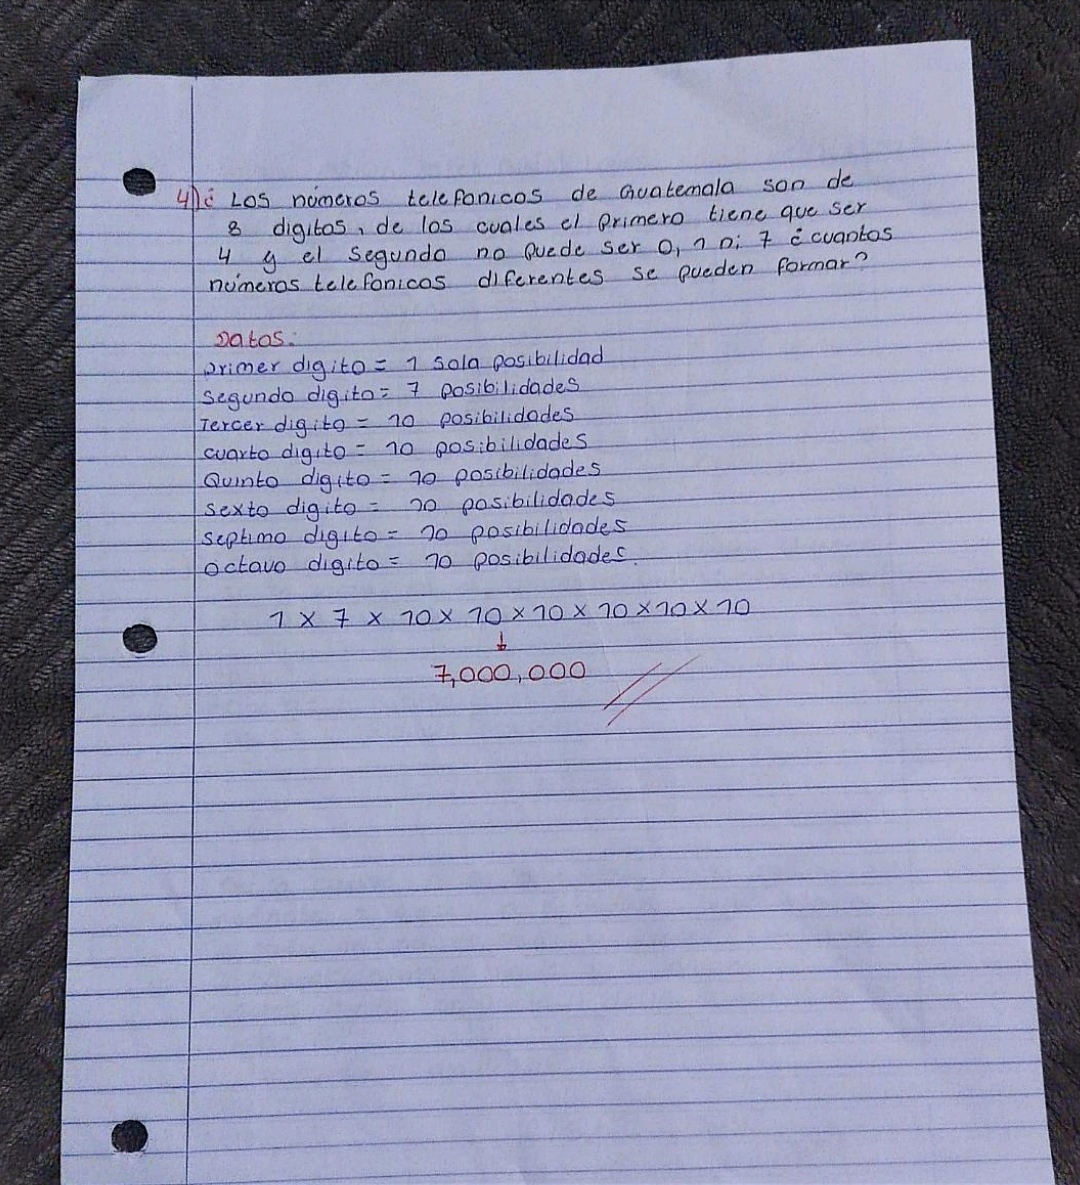 4) ¿ Los números telefonicos de Guatemala son de
8 digitos, de los cuales el primero tiene que ser
4 y el segundo no puede ser 0, 1 ni 7 ¿cuantos
números telefonicos diferentes se pueden formar?
Datos:
primer digito = 1 sola posibilidad
segundo digito = 7 posibilidades
Tercer digito = 10 posibilidades
cuarto digito = 10 posibilidades
Quinto digito = 10 posibilidades
sexto digito = 10 posibilidades
septimo digito = 10 posibilidades
octavo digito = 10 posibilidades.
1 x 7 x 10 x 10 x 10 x 10 x 10 x 10
↓
7,000,000